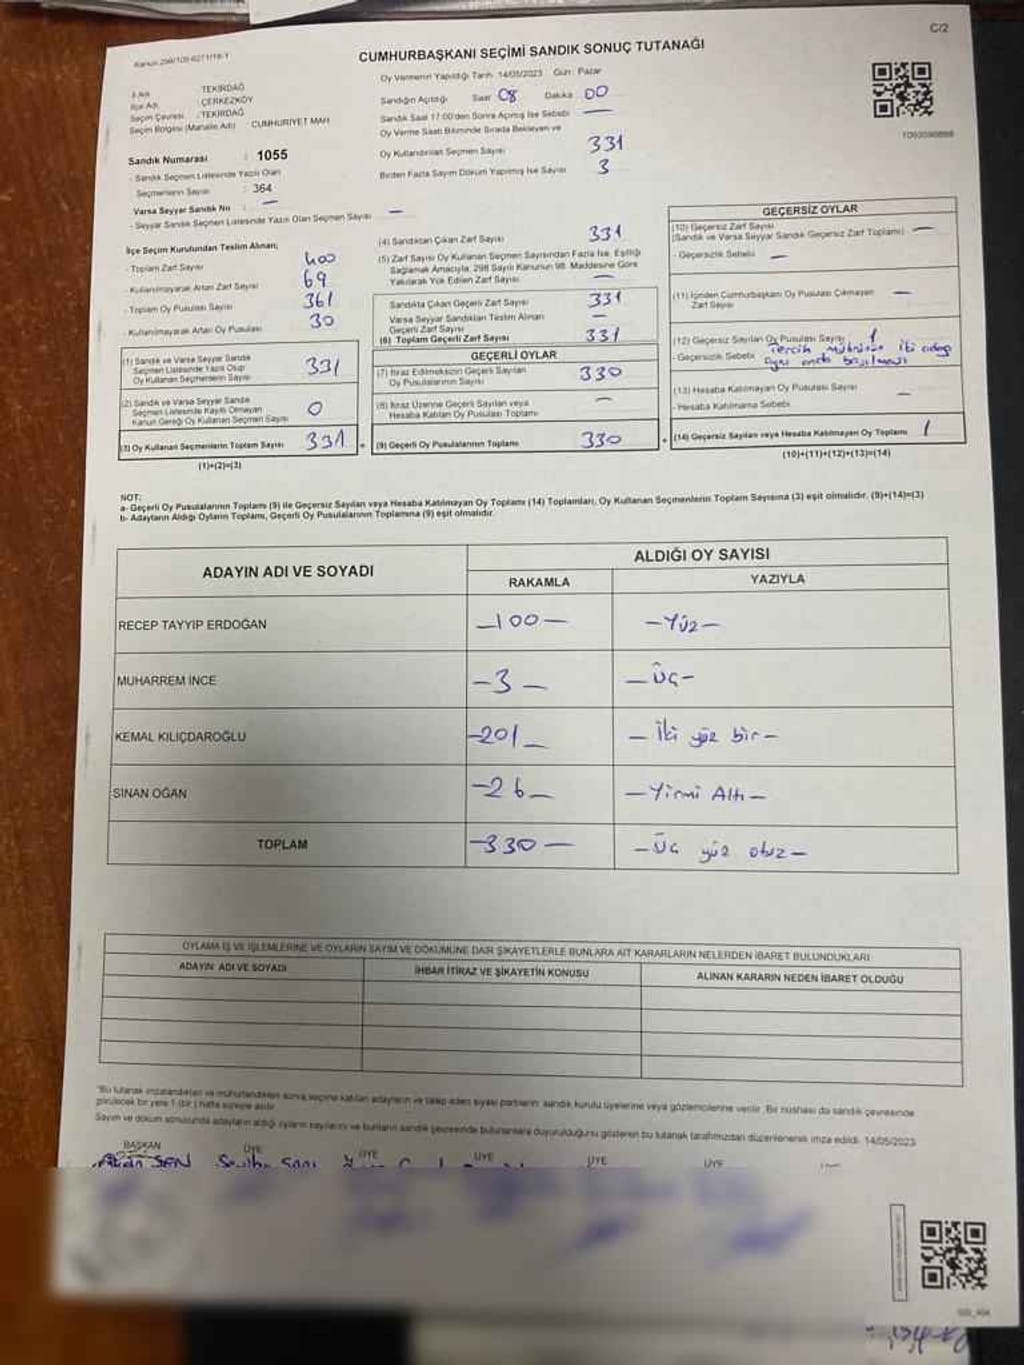 C/2
CUMHURBAŞKANI SEÇİMİ SANDIK SONUÇ TUTANAĞI
Oy Vermenin Yapıldığı Tarih 14/05/2023 Gün: Pazar
İl Adı : TEKİRDAĞ
İlçe Adı : ÇERKEZKÖY
Seçim Çevresi : TEKİRDAĞ
Seçim Bölgesi (Mahalle Adı) CUMHURİYET MAH
Sandığın Açıldığı Saat 08 Dakika 00
Sandık Saat 17:00'den Sonra Açılmış İse Sebebi —
Oy Verme Saati Bitiminde Sırada Bekleyen ve
Oy Kullandırılan Seçmen Sayısı 331
Birden Fazla Sayım Döküm Yapılmış İse Sayısı 3
Sandık Numarası : 1055
- Sandık Seçmen Listesinde Yazılı Olan
Seçmenlerin Sayısı : 364
Varsa Seyyar Sandık No : —
- Seyyar Sandık Seçmen Listesinde Yazılı Olan Seçmen Sayısı —
İlçe Seçim Kurulundan Teslim Alınan;
- Toplam Zarf Sayısı 400
- Kullanılmayarak Artan Zarf Sayısı 69
- Toplam Oy Pusulası Sayısı 361
- Kullanılmayarak Artan Oy Pusulası 30
(1) Sandık ve Varsa Seyyar Sandık
Seçmen Listesinde Yazılı Olup
Oy Kullanan Seçmenlerin Sayısı 331
(2) Sandık ve Varsa Seyyar Sandık
Seçmen Listesinde Kayıtlı Olmayan
Kanun Gereği Oy Kullanan Seçmen Sayısı 0
(3) Oy Kullanan Seçmenlerin Toplam Sayısı 331
(1)+(2)=(3)
(4) Sandıktan Çıkan Zarf Sayısı 331
(5) Zarf Sayısı Oy Kullanan Seçmen Sayısından Fazla İse, Eşitliği
Sağlamak Amacıyla, 298 Sayılı Kanunun 98. Maddesine Göre
Yakılarak Yok Edilen Zarf Sayısı —
Sandıkta Çıkan Geçerli Zarf Sayısı 331
Varsa Seyyar Sandıktan Teslim Alınan
Geçerli Zarf Sayısı —
(6) Toplam Geçerli Zarf Sayısı 331
GEÇERLİ OYLAR
(7) İtiraz Edilmeksizin Geçerli Sayılan
Oy Pusulalarının Sayısı 330
(8) İtiraz Üzerine Geçerli Sayılan veya
Hesaba Katılan Oy Pusulası Toplamı —
(9) Geçerli Oy Pusulalarının Toplamı 330
GEÇERSİZ OYLAR
(10) Geçersiz Zarf Sayısı
(Sandık ve Varsa Seyyar Sandık Geçersiz Zarf Toplamı) —
- Geçersizlik Sebebi —
(11) İçinden Cumhurbaşkanı Oy Pusulası Çıkmayan
Zarf Sayısı —
(12) Geçersiz Sayılan Oy Pusulası Sayısı 1
- Geçersizlik Sebebi Tercih mührünün iki adayı
aynı anda basılması
(13) Hesaba Katılmayan Oy Pusulası Sayısı —
- Hesaba Katılmama Sebebi
(14) Geçersiz Sayılan veya Hesaba Katılmayan Oy Toplamı 1
(10)+(11)+(12)+(13)=(14)
NOT:
a- Geçerli Oy Pusulalarının Toplamı (9) ile Geçersiz Sayılan veya Hesaba Katılmayan Oy Toplamı (14) Toplamları, Oy Kullanan Seçmenlerin Toplam Sayısına (3) eşit olmalıdır. (9)+(14)=(3)
b- Adayların Aldığı Oyların Toplamı, Geçerli Oy Pusulalarının Toplamına (9) eşit olmalıdır.
ADAYIN ADI VE SOYADI
ALDIĞI OY SAYISI
RAKAMLA YAZIYLA
RECEP TAYYİP ERDOĞAN —100— —Yüz—
MUHARREM İNCE —3— —Üç—
KEMAL KILIÇDAROĞLU —201— —İki yüz bir—
SİNAN OĞAN —26— —Yirmi Altı—
TOPLAM —330— —Üç yüz otuz—
OYLAMA İŞ VE İŞLEMLERİNE VE OYLARIN SAYIM VE DÖKÜMÜNE DAİR ŞİKAYETLERLE BUNLARA AİT KARARLARIN NELERDEN İBARET BULUNDUKLARI
ADAYIN ADI VE SOYADI İHBAR İTİRAZ VE ŞİKAYETİN KONUSU ALINAN KARARIN NEDEN İBARET OLDUĞU
"Bu tutanak imzalandıktan ve mühürlendikten sonra seçime katılan adayların ve talep eden siyasi partilerin sandık kurulu üyelerine veya gözlemcilerine verilir. Bir nüshası da sandık çevresinde
görülecek bir yere 1 (bir) hafta süreyle asılır.
Sayım ve döküm sonucunda adayların aldığı oyların sayılarını ve bunların sandık çevresinde bulunanlara duyurulduğunu gösteren bu tutanak tarafımızdan düzenlenerek imza edildi. 14/05/2023
BAŞKAN ÜYE ÜYE ÜYE ÜYE ÜYE
ŞEN